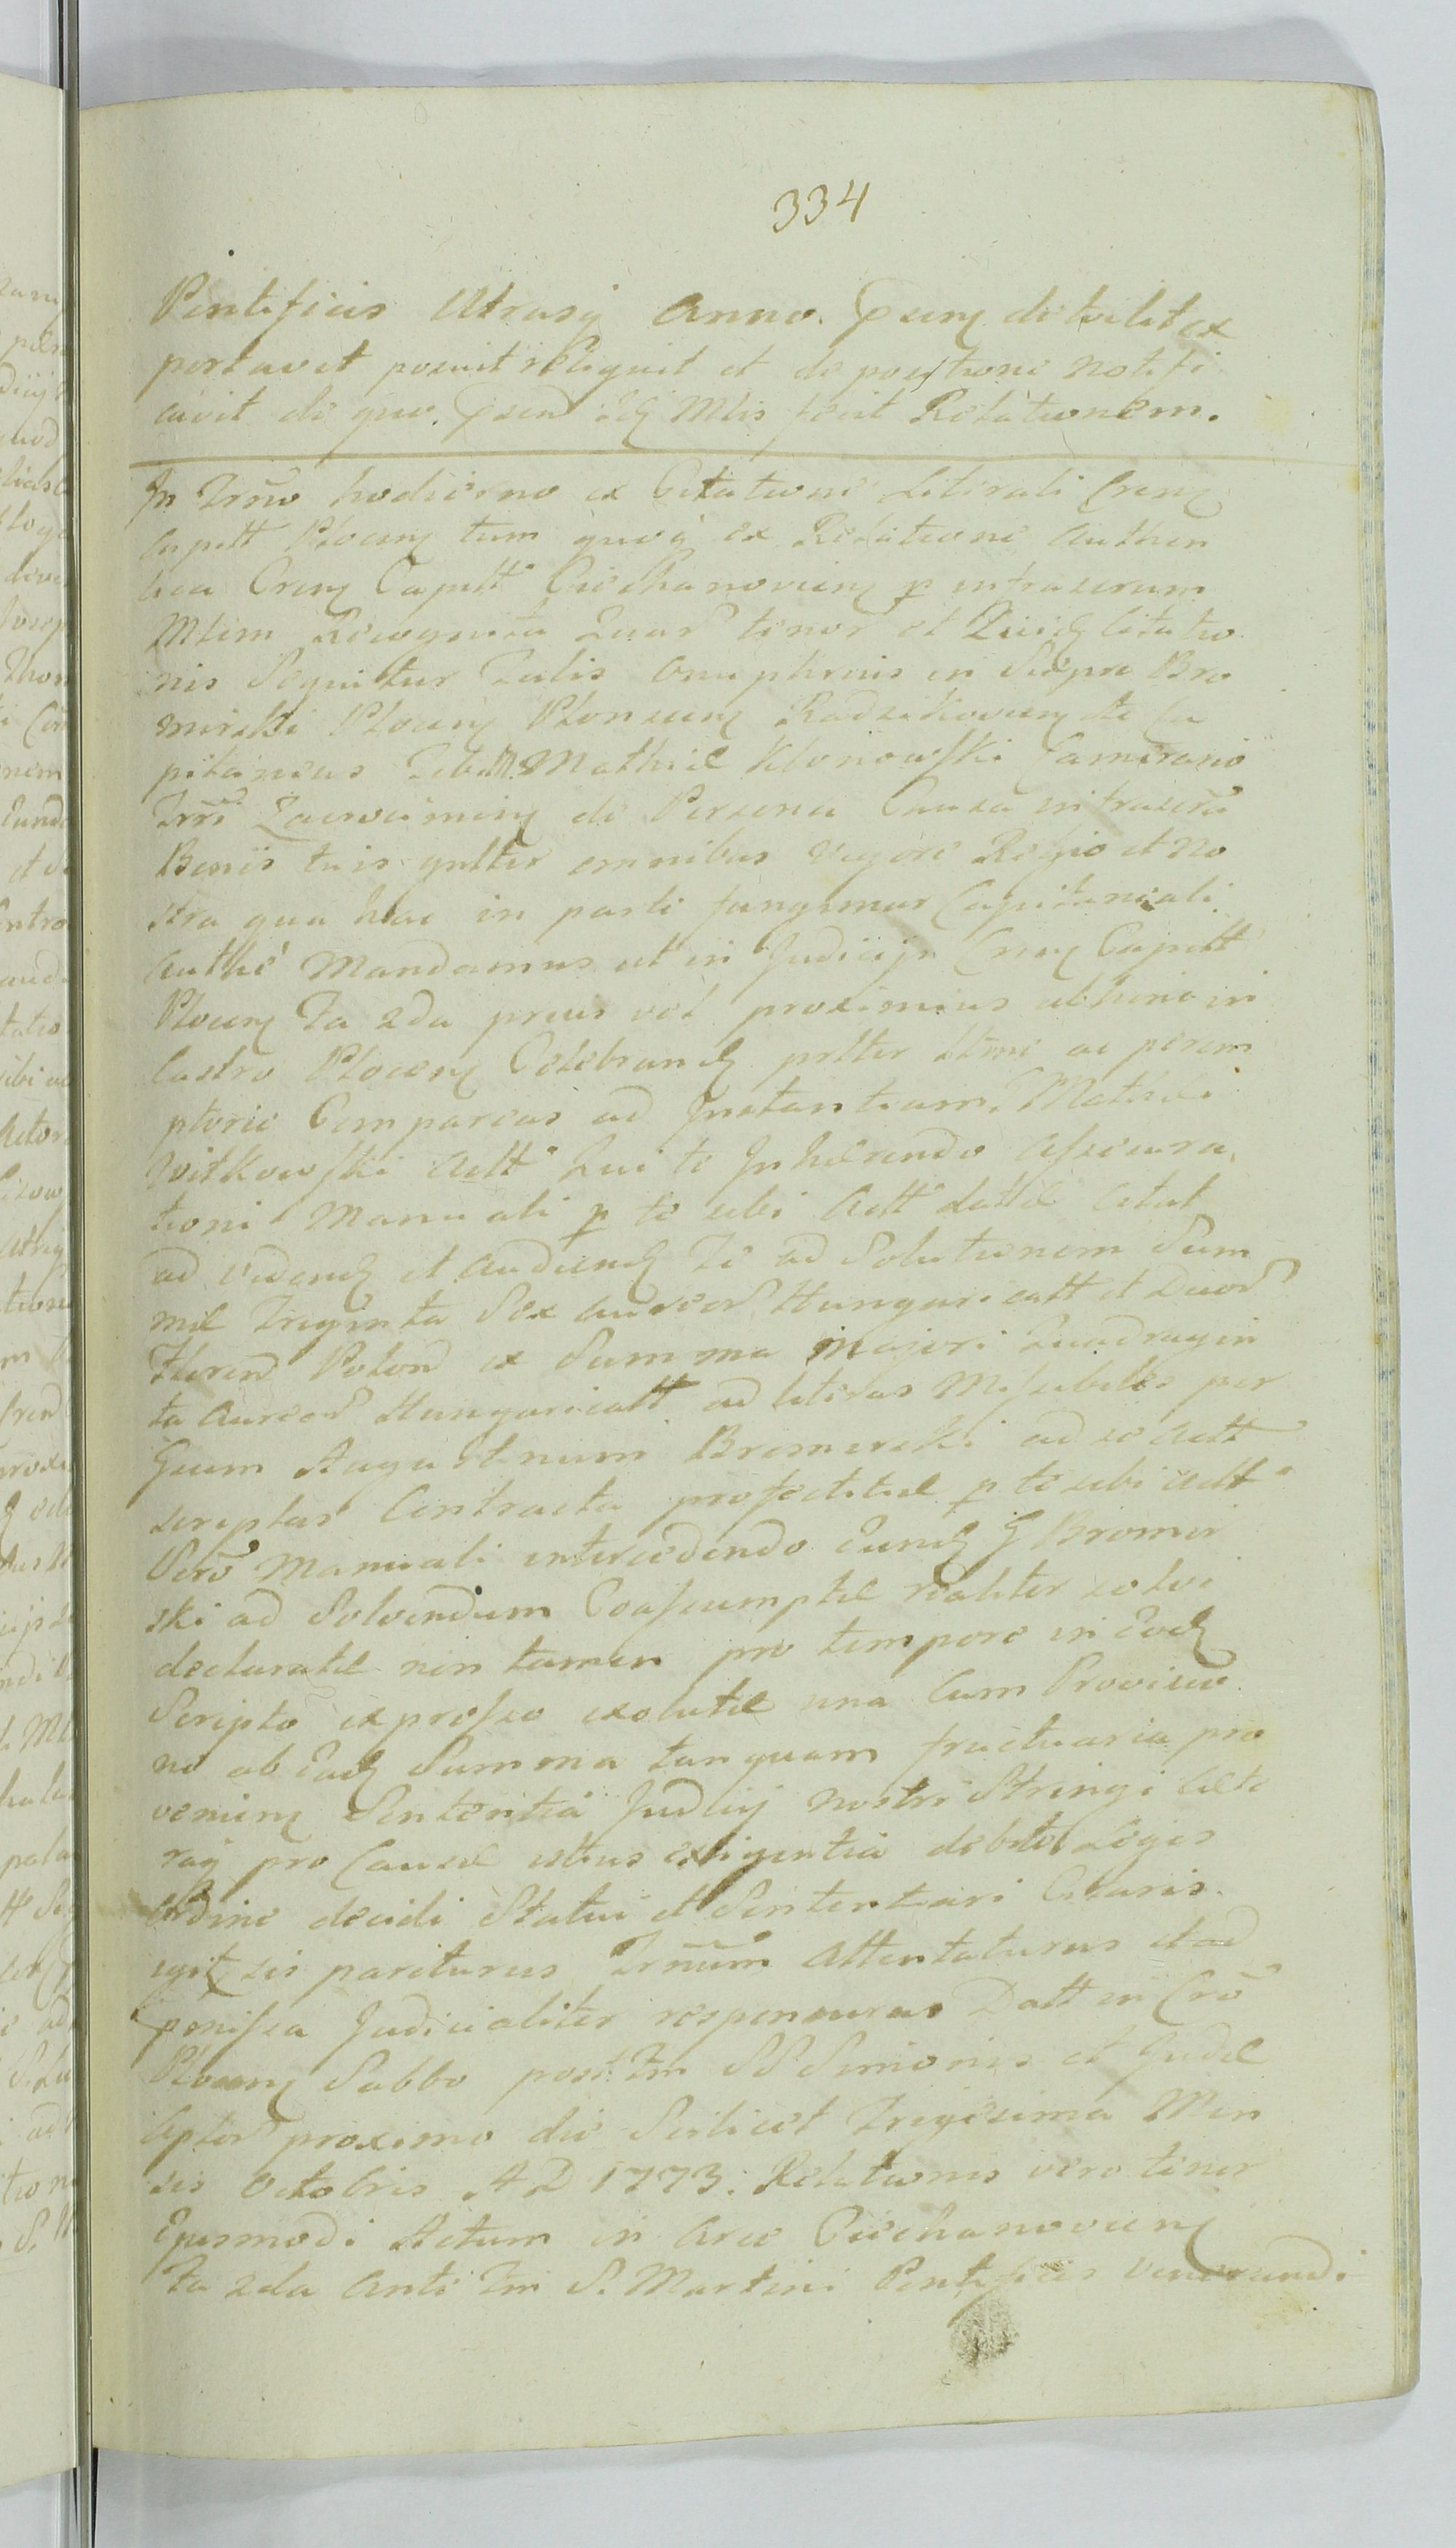 334
Pontificis Anno. detulit ex
portavit posuit reliquit et de positione notifi
cavit de quo Mlis fecit Relationem.
In Trño hodierno ex Citatione Literali Cren
Capitt Plocen tum quoq ex Relatione Authen
tica Cren Capitt Ciechanovien p infrascrum
Mlem Recognita Quar tenor et Citatio
nis Sequitur Talis Onuphrius in Siepra Bro
mirski Plocen Plonscen Radzikovien Ca
pitaneus Mathiae Klonowski Camerario
Trris Zawcrinen de Persona Causa infrascra
Bonis tuis gnlter omnibus vigore Regio et No
stra qua hac in parte fungimur Capitaneali
Authe Mandamus ut in Judicijs Cren Capitt
Plocen Fa 2da prius vel proximius abhinc in
Castro Plocen Celebrand pnlter ac perem
ptorie Compareas ad Instantiam Mathei
Witkowski Actt Qui te Inhærendo Assecura
tioni Manuali p te sibi Actt Dattæ Citat
ad Videnq et Audienq Te ad Solutionem Sum
mæ Triginta Sex Aureor Hungaricatt et Duor
Floren Polon ex Summa Majori Quadragin
ta Aureor Hungaricatt ad literas Missibiles per
Gsum Augustinum Bromirski ad se Actt
scriptas Contracta p te sibi Actt
Manuali intercedendo Eunq G Bromir
ski ad Solvendum Coassumptæ realiter solvi
declaratæ non tamen pro tempore in Eoq
Scripto expresso exolutæ una Cum Provisio
ne ab Eaq Summa tanquam fructuaria pro
venien Sententia Judicij nostri Stringi Cæte
raq pro Causæ istius exigentia debito Legis
Ordine decidi Statui et Sententiari Citaris.
sis pariturus Trñum Attentaturus et ad
pmissa Judicialiter responsurus Datt in Cro
Plocen Sabbo post Fm SS Simonis et Judæ
Aptor proximo die Scilicet Trigesima Men
sis Octobris A D 1773. Relationis vero tenor
Ejusmodi Actum in Arce Ciechanovien
Fa 2da Ante Fm S. Martini Pontificis Venerandi